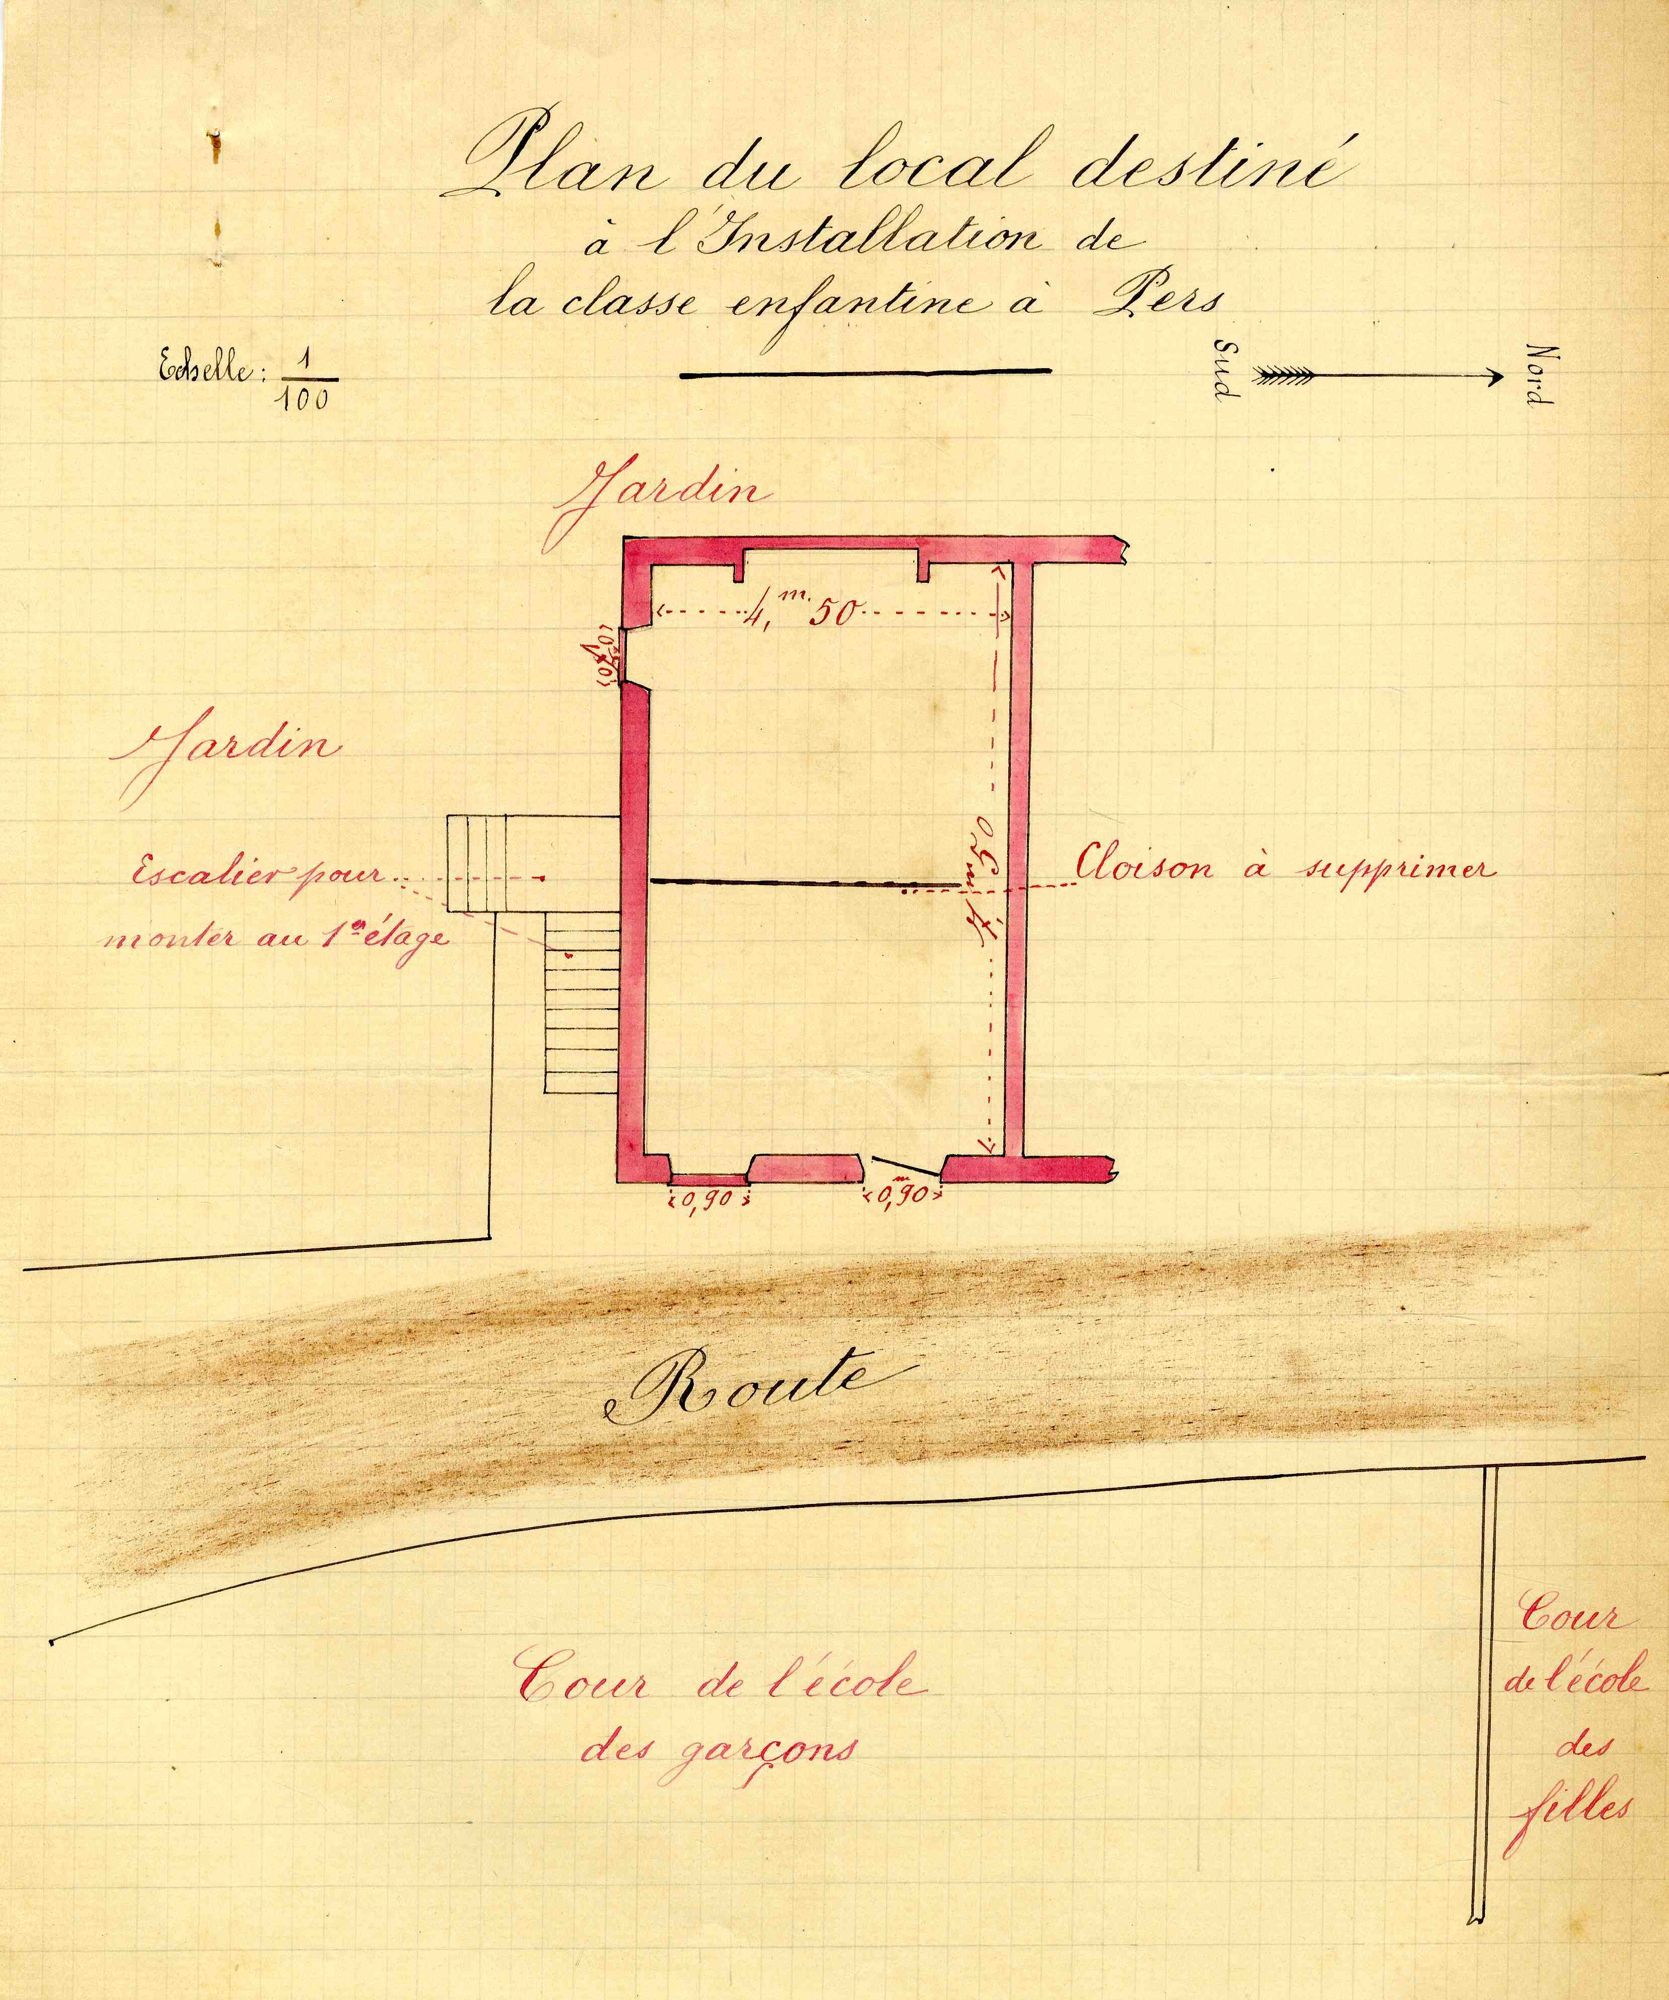 Plan du local destiné
à l'Installation de
la classe enfantine à Pers
Echelle: 1/100
Sud
Nord
Jardin
4,m.50
0,m70
Jardin
Escalier pour
monter au 1er étage
7,m50
Cloison à supprimer
0,90
0,m90
Route
Cour de l'école
des garçons
Cour
de l'école
des
filles